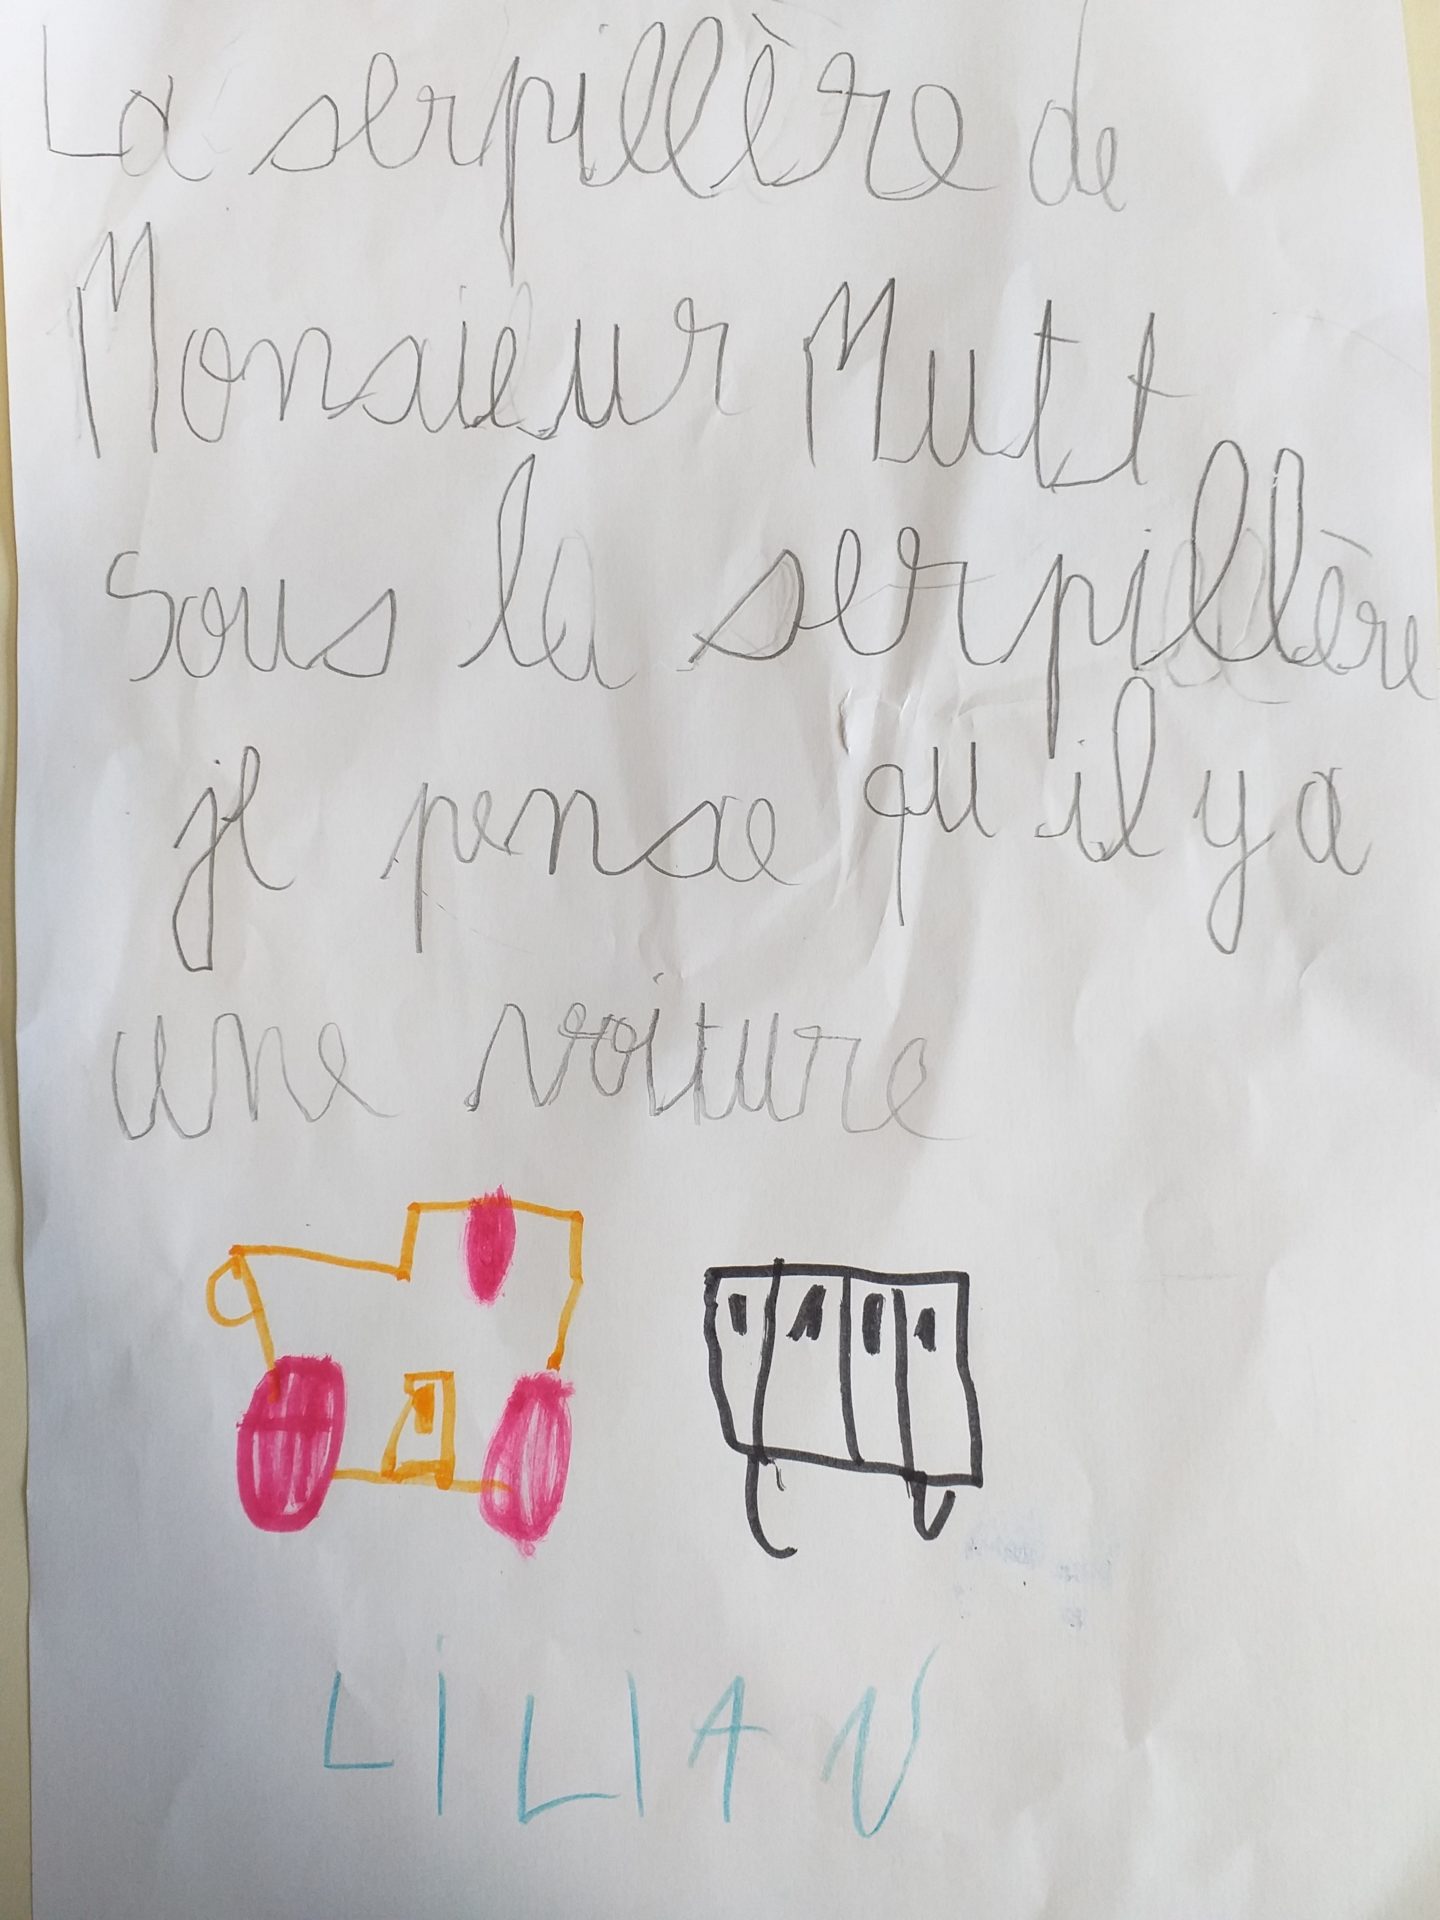 La serpillère de
Monsieur Mutt
Sous la serpillère
je pense qu'il y a
une voiture
LILIAN